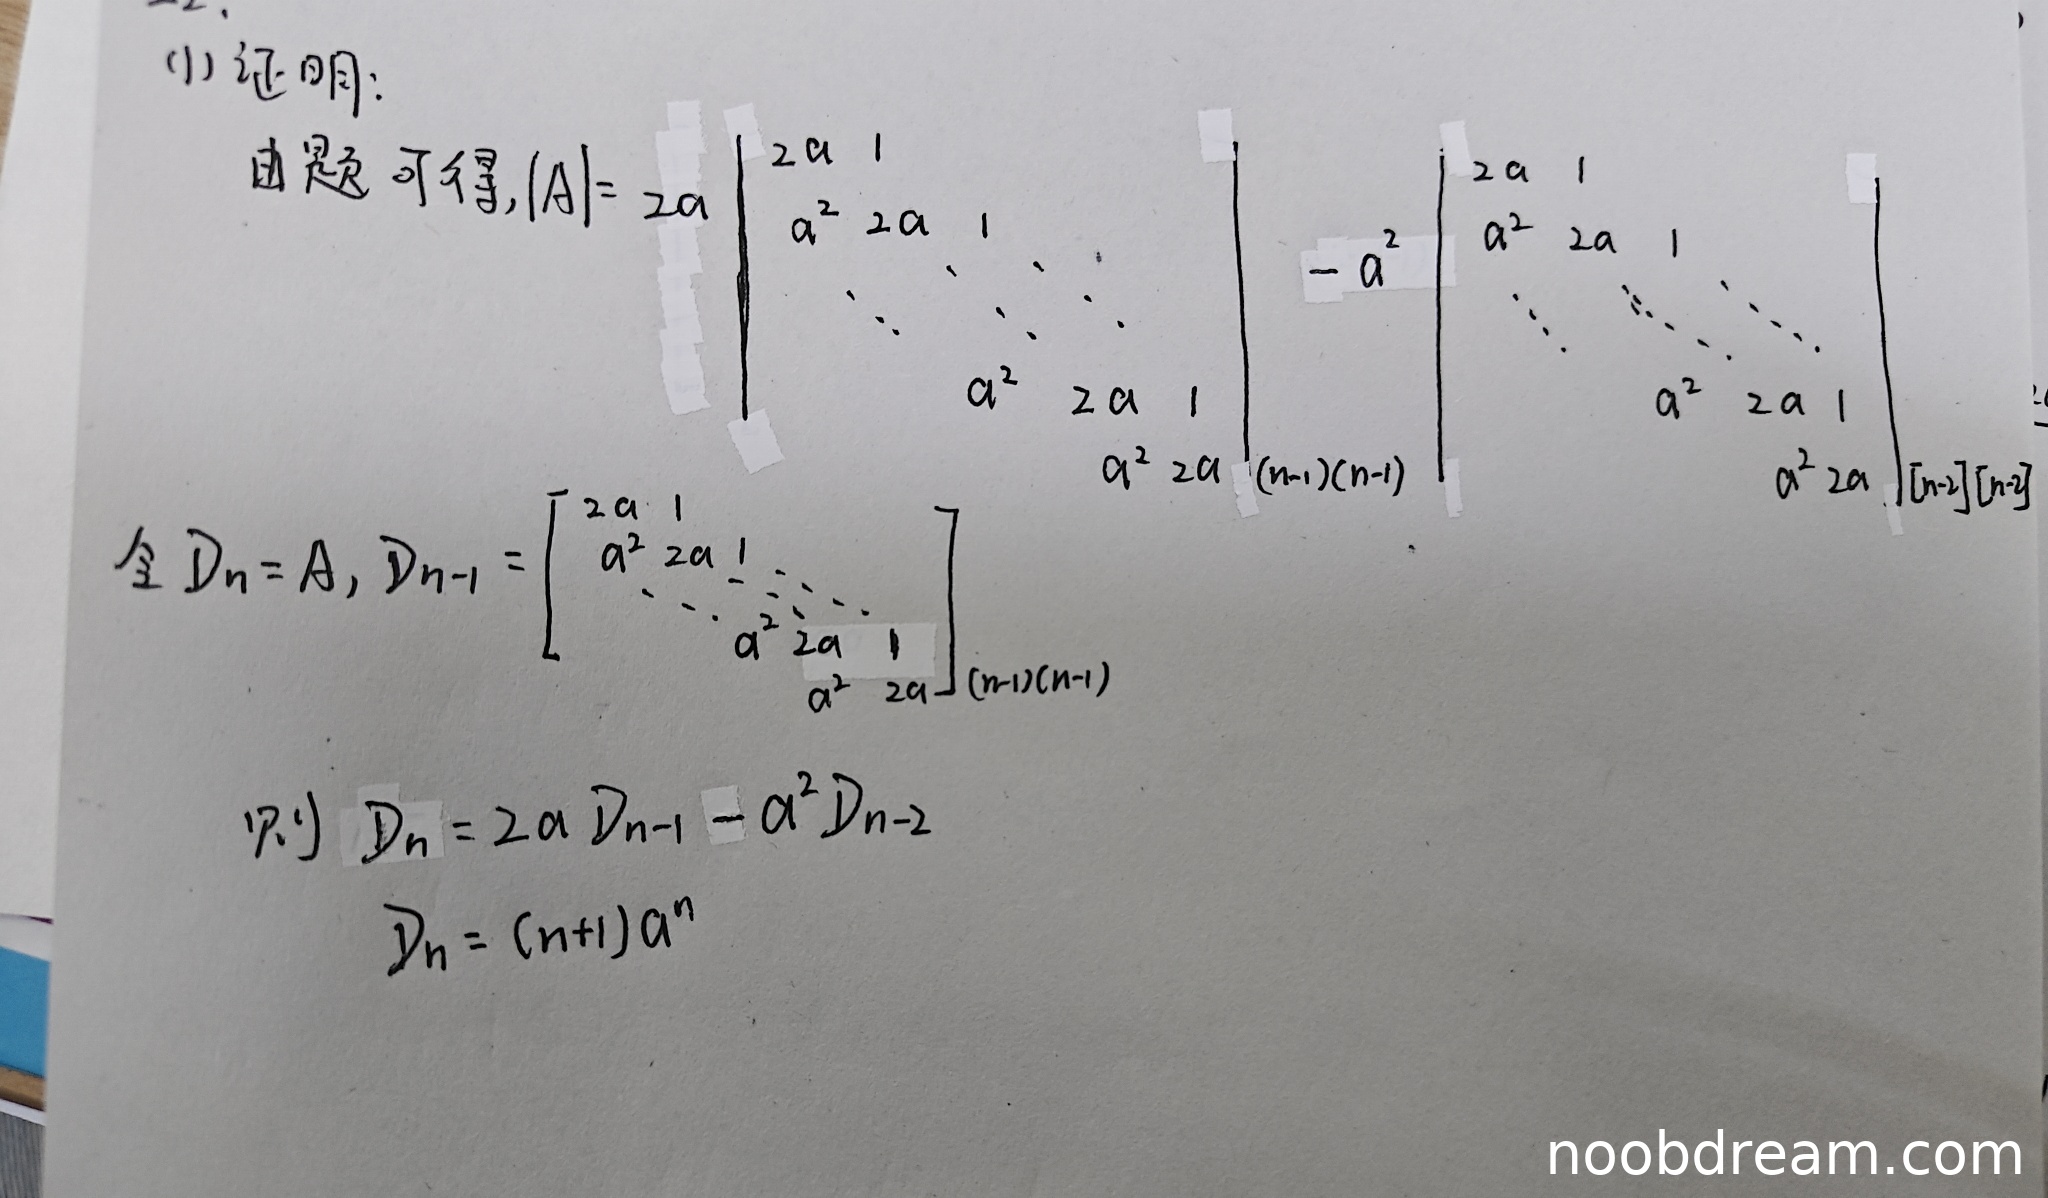 (1) 证明:
由题可得, |A| = 2a | 2a 1 | - a² | 2a 1 |
a² 2a 1 a² 2a 1
a² 2a 1 a² 2a 1
a² 2a (n-1)(n-1) a² 2a [n-2][n-2]
令 Dn = A, Dn-1 = [ 2a 1
a² 2a 1
a² 2a 1
a² 2a ] (n-1)(n-1)
则 Dn = 2a Dn-1 - a² Dn-2
Dn = (n+1) aⁿ
noobdream.com